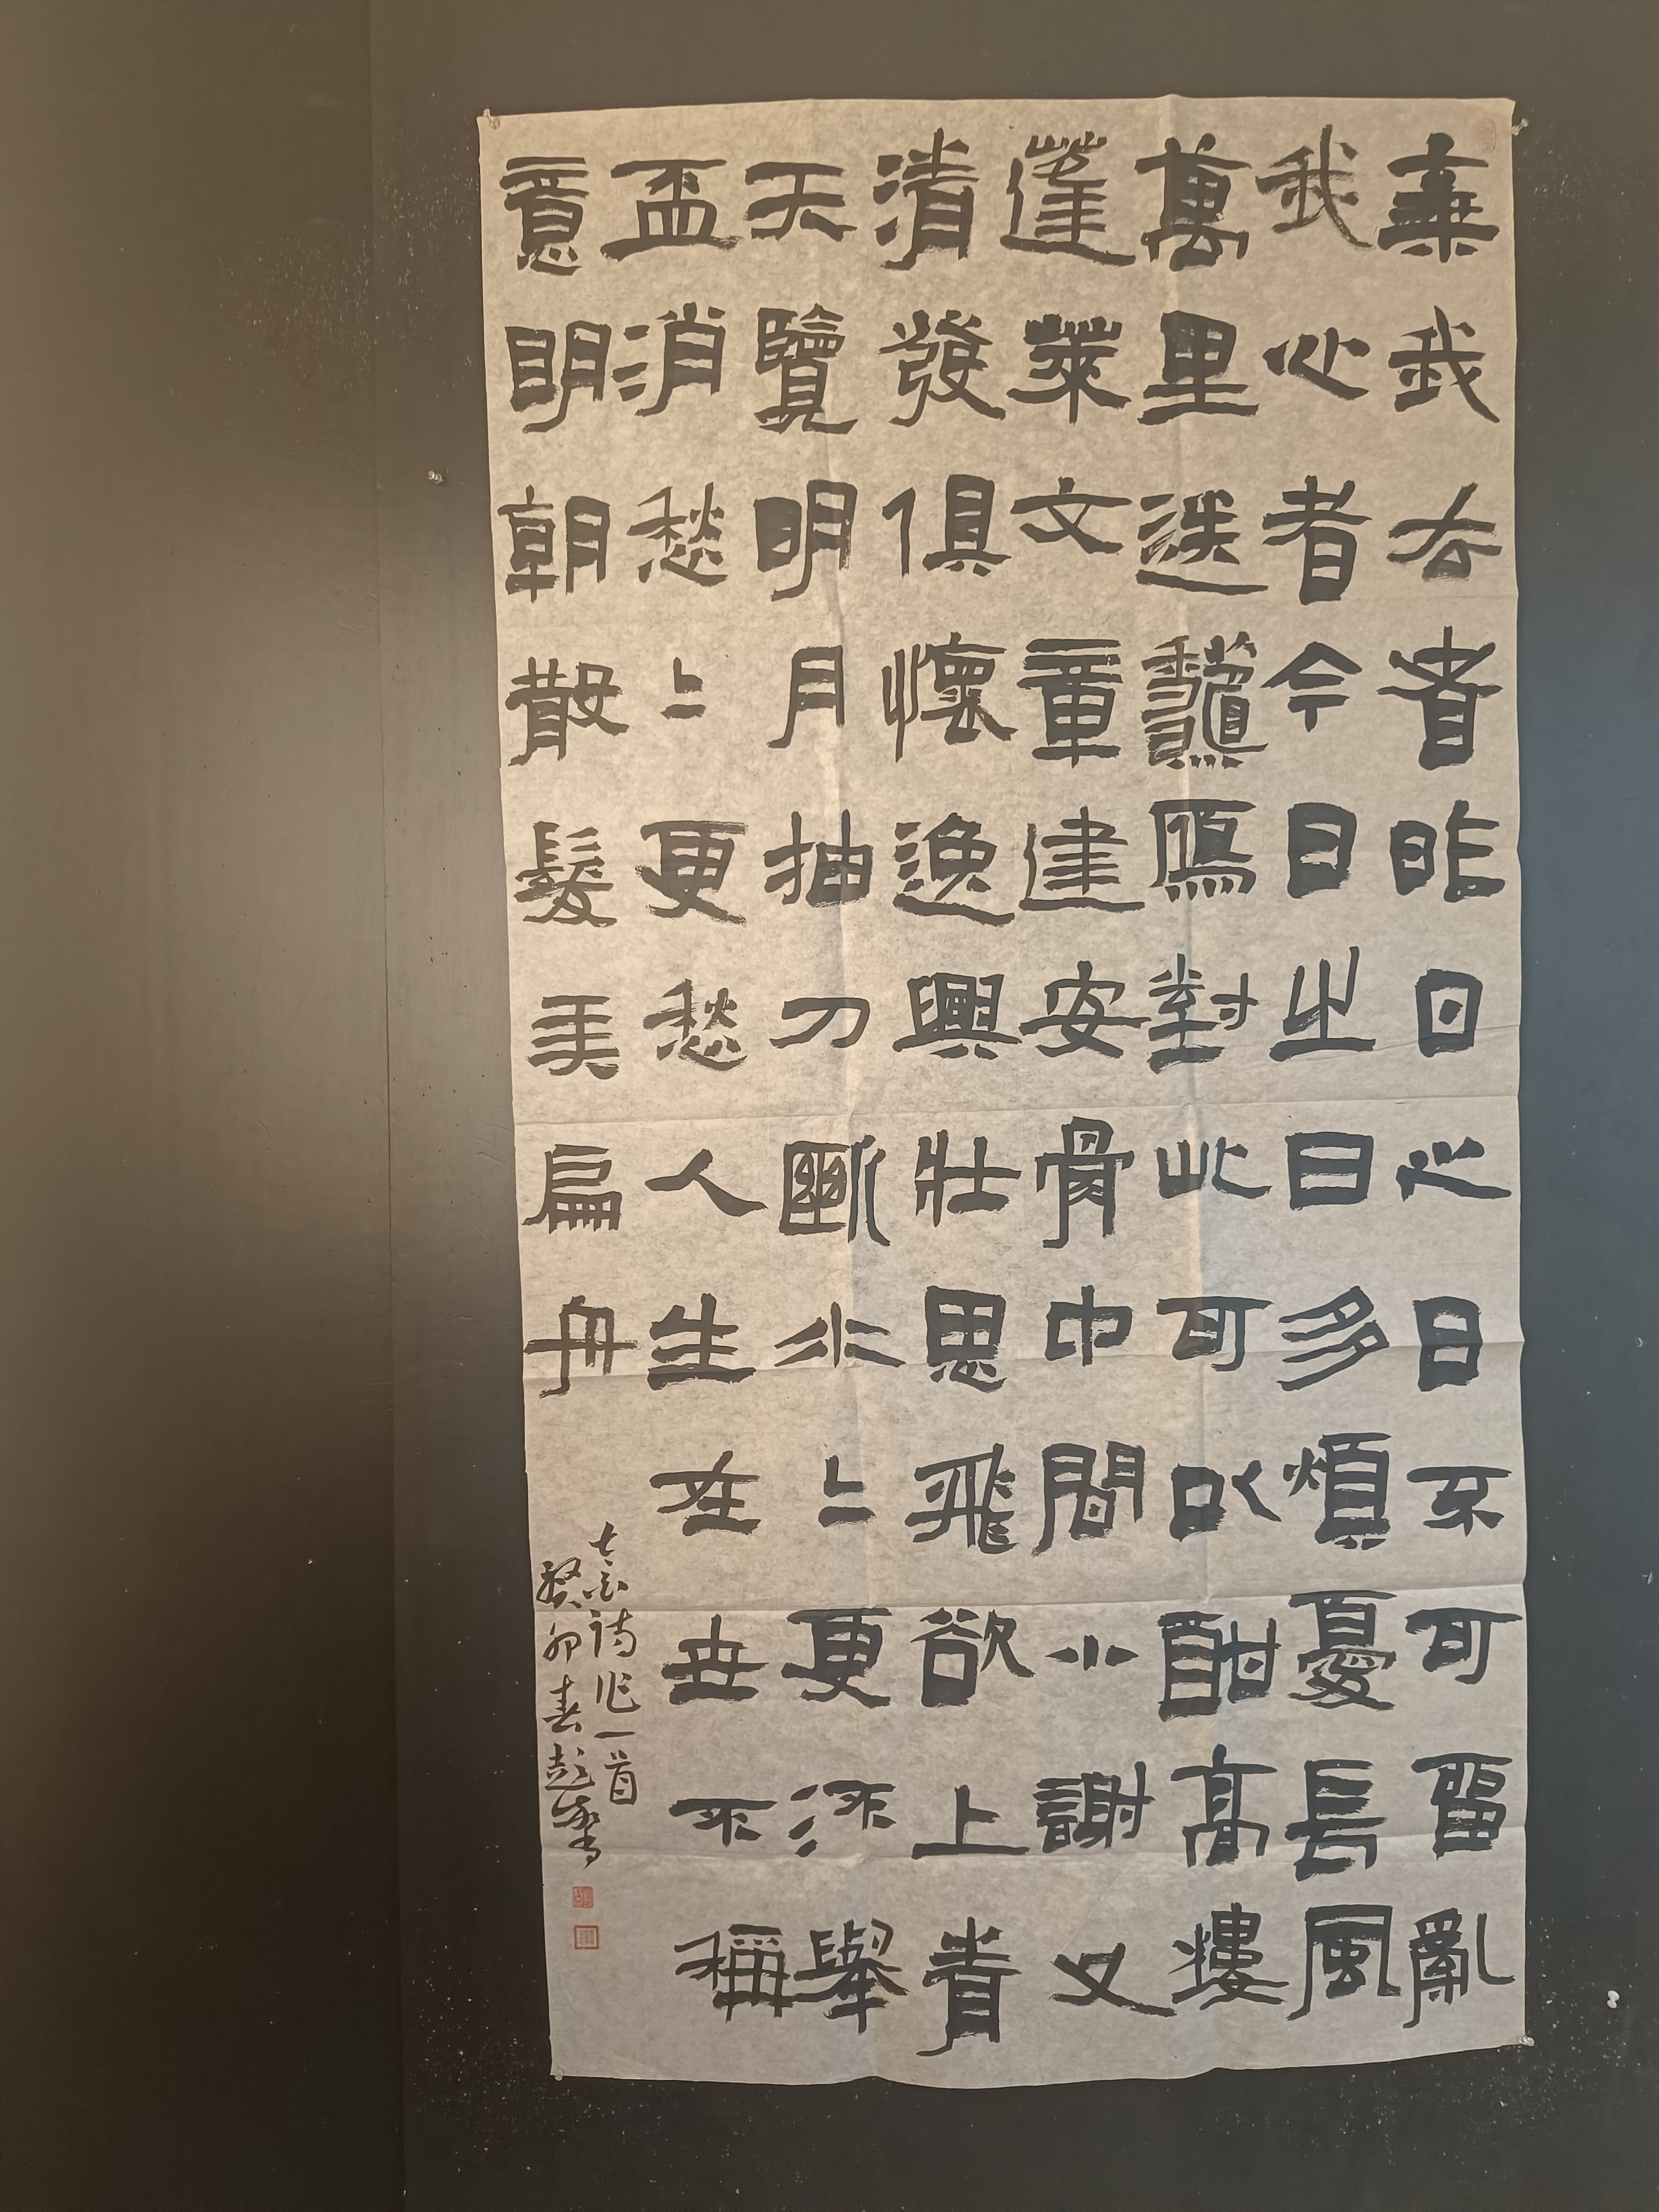 棄我去者昨日之日不可留亂
我心者今日之日多煩憂長風
萬里送秋鴈對此可以酣高樓
蓬萊文章建安骨中間小謝又
清發俱懷逸興壯思飛欲上青
天覽明月抽刀斷水〻更流舉
盃消愁〻更愁人生在世不稱
意明朝散髮弄扁舟
詩作一首
癸卯春